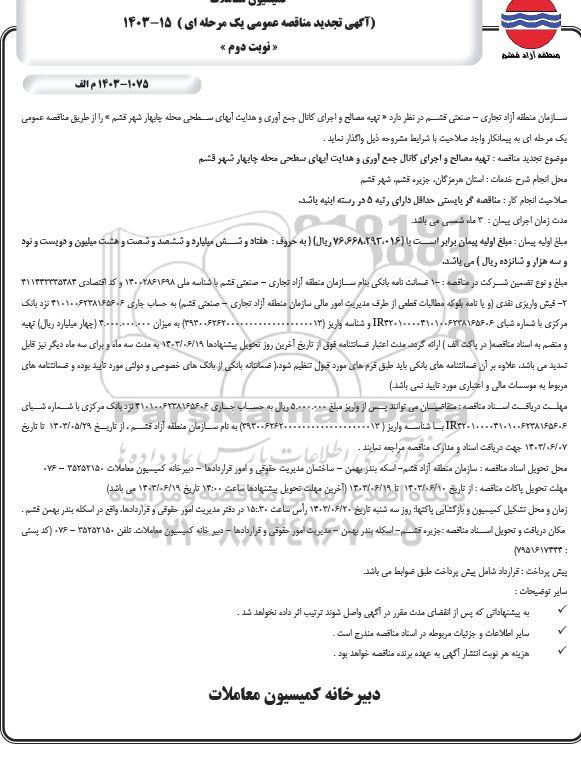 کمیسیون معاملات
(آگهی تجدید مناقصه عمومی یک مرحله ای ) ۱۵-۱۴۰۳
« نوبت دوم »
منطقه آزاد قشم
۱۴۰۳-۱۰۷۵ م الف
ســازمان منطقه آزاد تجاری – صنعتی قشــم در نظر دارد « تهیه مصالح و اجرای کانال جمع آوری و هدایت آبهای ســطحی محله چابهار شهر قشم » را از طریق مناقصه عمومی
یک مرحله ای به پیمانکار واجد صلاحیت با شرایط مشروحه ذیل واگذار نماید .
موضوع تجدید مناقصه : تهیه مصالح و اجرای کانال جمع آوری و هدایت آبهای سطحی محله چابهار شهر قشم
محل انجام شرح خدمات : استان هرمزگان، جزیره قشم، شهر قشم
صلاحیت انجام کار : مناقصه گر بایستی حداقل دارای رتبه ۵ در رسته ابنیه باشد.
مدت زمان اجرای پیمان : ۳ ماه شمسی می باشد.
مبلغ اولیه پیمان : مبلغ اولیه پیمان برابر اســت با (۷۶.۶۶۸.۲۹۳.۰۱۶ ریال) ( به حروف : هفتاد و شــش میلیارد و ششصد و شصت و هشت میلیون و دویست و نود
و سه هزار و شانزده ریال ) می باشد.
مبلغ و نوع تضمین شــرکت در مناقصه : ۱- ضمانت نامه بانکی بنام ســازمان منطقه آزاد تجاری – صنعتی قشم با شناسه ملی ۱۴۰۰۲۸۶۱۶۹۸ و کد اقتصادی ۴۱۱۴۴۳۳۳۵۴۸۴
۲- فیش واریزی نقدی (و یا نامه بلوکه مطالبات قطعی از طرف مدیریت امور مالی سازمان منطقه آزاد تجاری – صنعتی قشم) به حساب جاری ۴۱۰۱۰۰۶۲۳۸۱۶۵۶۰۶ نزد بانک
مرکزی با شماره شبای IR۴۲۰۱۰۰۰۰۴۱۰۱۰۰۶۲۳۸۱۶۵۶۰۶ و شناسه واریز به میزان ۴.۰۰۰.۰۰۰.۰۰۰ (چهار میلیارد ریال) تهیه
و منضم به اسناد مناقصه( در پاکت الف ) ارائه گردد. مدت اعتبار ضمانتنامه فوق از تاریخ آخرین روز تحویل پیشنهادها ۱۴۰۳/۰۶/۱۹ به مدت سه ماه و برای سه ماه دیگر نیز قابل
تمدید می باشد، علاوه بر آن ضمانتنامه های بانکی باید طبق فرم های مورد قبول تنظیم شود.( ضمانتنانه بانکی از بانک های خصوصی و دولتی مورد تایید بوده و ضمانتنامه های
مربوط به موسسات مالی و اعتباری مورد تایید نمی باشد)
مهلــت دریافــت اســناد مناقصه : متقاضیــان می توانند پــس از واریز مبلغ ۵.۰۰۰.۰۰۰ ریال به حســاب جــاری ۴۱۰۱۰۰۶۲۳۸۱۶۵۶۰۶ نزد بانک مرکزی با شــماره شــبای
IR۴۲۰۱۰۰۰۰۴۱۰۱۰۰۶۲۳۸۱۶۵۶۰۶ بــا شناســه واریــز به نام سازمان منطقه آزاد قشــم ، از تاریــخ ۱۴۰۳/۰۵/۲۹ تا تاریخ
۱۴۰۳/۰۶/۰۷ جهت دریافت اسناد و مدارک مناقصه مراجعه نمایند .
محل تحویل اسناد مناقصه : سازمان منطقه آزاد قشم- اسکه بندر بهمن – ساختمان مدیریت حقوقی و امور قراردادها – دبیرخانه کمیسیون معاملات ۳۵۲۵۲۱۵۰ – ۰۷۶
مهلت تحویل پاکات مناقصه : از تاریخ ۱۴۰۳/۰۶/۱۰ تا ۱۴۰۳/۰۶/۱۹ (آخرین مهلت تحویل پیشنهادها ساعت ۱۴:۰۰ تاریخ ۱۴۰۳/۰۶/۱۹ می باشد)
زمان و محل تشکیل کمیسیون و بازگشایی پاکتها: روز سه شنبه تاریخ ۱۴۰۳/۰۶/۲۰ رأس ساعت ۱۵:۳۰ در دفتر مدیریت امور حقوقی و قراردادها، واقع در اسکه بندر بهمن قشم .
مکان دریافت و تحویل اســناد مناقصه :جزیره قشــم- اسکه بندر بهمن – مدیریت امور حقوقی و قراردادها – دبیر خانه کمیسیون معاملات. تلفن ۳۵۲۵۲۱۵۰ – ۰۷۶ (کد پستی
: ۷۹۵۱۶۱۷۴۴۴)
پیش پرداخت : قرارداد شامل پیش پرداخت طبق ضوابط می باشد.
سایر توضیحات :
✓ به پیشنهاداتی که پس از انقضای مدت مقرر در آگهی واصل شوند ترتیب اثر داده نخواهد شد .
✓ سایر اطلاعات و جزئیات مربوطه در اسناد مناقصه مندرج است .
✓ هزینه هر نوبت انتشار آگهی به عهده برنده مناقصه خواهد بود .
دبیرخانه کمیسیون معاملات